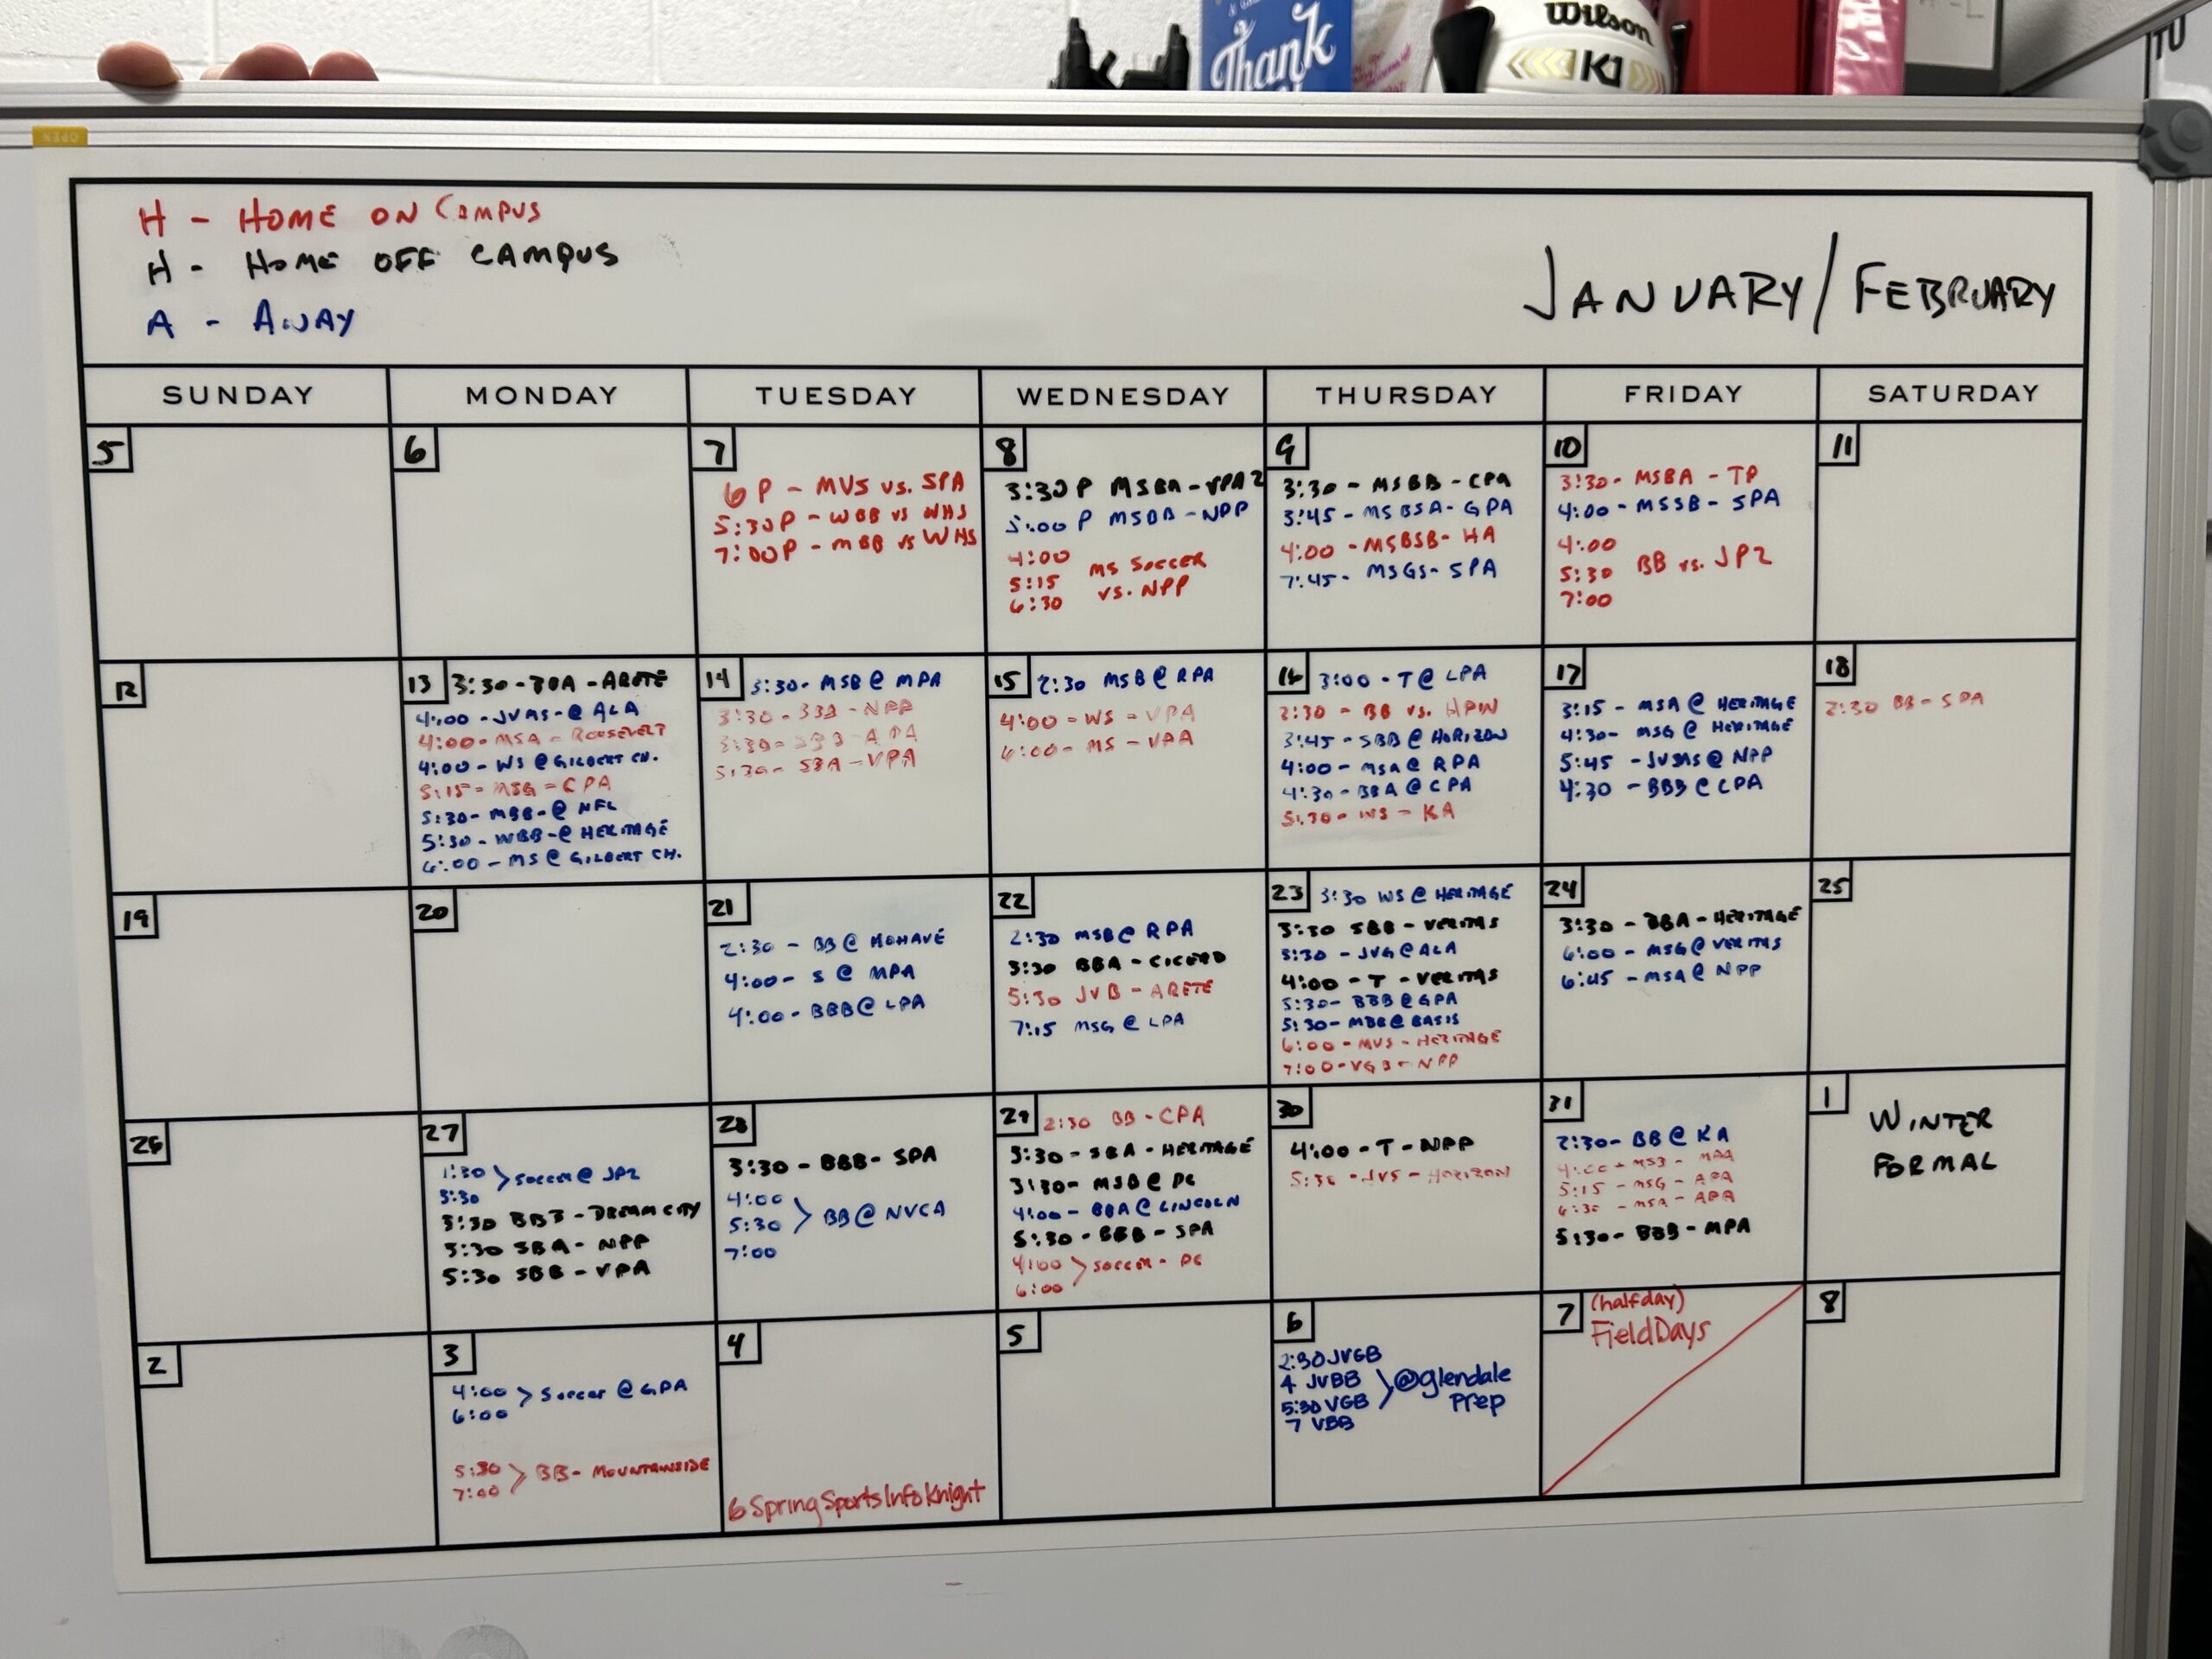 Thank
Wilson
K1
OPEN
H - HOME ON CAMPUS
H - HOME OFF CAMPUS
A - AWAY
JANUARY/FEBRUARY
SUNDAY MONDAY TUESDAY WEDNESDAY THURSDAY FRIDAY SATURDAY
5
6
7
6P - MVS vs. SPA
5:30P - WBB vs WHS
7:00P - MBB vs WHS
8
3:30P MSBA - VPA2
5:00P MSBB - NPP
4:00
5:15 MS SOCCER
6:30 vs. NPP
9
3:30 - MSBB - CPA
3:45 - MSBSA - GPA
4:00 - MSBSB - HA
7:45 - MSGS - SPA
10
3:30 - MSBA - TP
4:00 - MSSB - SPA
4:00
5:30 BB vs. JP2
7:00
11
12
13 3:30 - - ARETE
4:00 - JVMS - @ ALA
4:00 - MSA - ROOSEVELT
4:00 - WS @ GILBERT CH.
5:15 - MSG - CPA
5:30 - MBB - @ NFL
5:30 - WBB - @ HERITAGE
6:00 - MS @ GILBERT CH.
14 3:30 - MSB @ MPA
3:30 - - NPP
3:30 - SBB - APA
5:30 - SBA - VPA
15 2:30 MSB @ RPA
4:00 - WS - VPA
6:00 - MS - VPA
16 3:00 - T @ LPA
2:30 - BB vs. HPW
3:45 - SBB @ HORIZON
4:00 - MSA @ RPA
4:30 - BBA @ CPA
5:30 - WS - KA
17
3:15 - MSA @ HERITAGE
4:30 - MSG @ HERITAGE
5:45 - JVMS @ NPP
4:30 - BBB @ CPA
18
2:30 BB - SPA
19
20
21
2:30 - BB @ MOHAVE
4:00 - S @ MPA
4:00 - BBB @ LPA
22
2:30 MSB @ RPA
3:30 BBA - CICERO
5:30 JVB - ARETE
7:15 MSG @ LPA
23 3:30 WS @ HERITAGE
3:30 SBB - VERITAS
3:30 - JVG @ ALA
4:00 - T - VERITAS
5:30 - BBB @ GPA
5:30 - MBB @ BASIS
6:00 - MVS - HERITAGE
7:00 - VGB - NPP
24
3:30 - BBA - HERITAGE
6:00 - MSG @ VERITAS
6:45 - MSA @ NPP
25
26
27
1:30 > SOCCER @ JP2
3:30
3:30 BBB - DREAM CITY
3:30 SBA - NPP
5:30 SBB - VPA
28
3:30 - BBB - SPA
4:00
5:30 > BB @ NVCA
7:00
29 2:30 BB - CPA
3:30 - SBA - HERITAGE
3:30 - MSB @ PC
4:00 - BBA @ LINCOLN
5:30 - BBB - SPA
4:00 > SOCCER - PC
6:00
30
4:00 - T - NPP
5:30 - JVS - HORIZON
31
2:30 - BB @ KA
4:00 - MSB - MPA
5:15 - MSG - APA
6:30 - MSA - APA
5:30 - BBB - MPA
1 WINTER
FORMAL
2
3
4:00 > Soccer @ GPA
6:00
5:30 > BB - MOUNTAINSIDE
7:00
4
6 Spring Sports Info Knight
5
6
2:30 JVGB
4 JVBB > @glendale
5:30 VGB Prep
7 VBB
7 (halfday)
Field Days
8